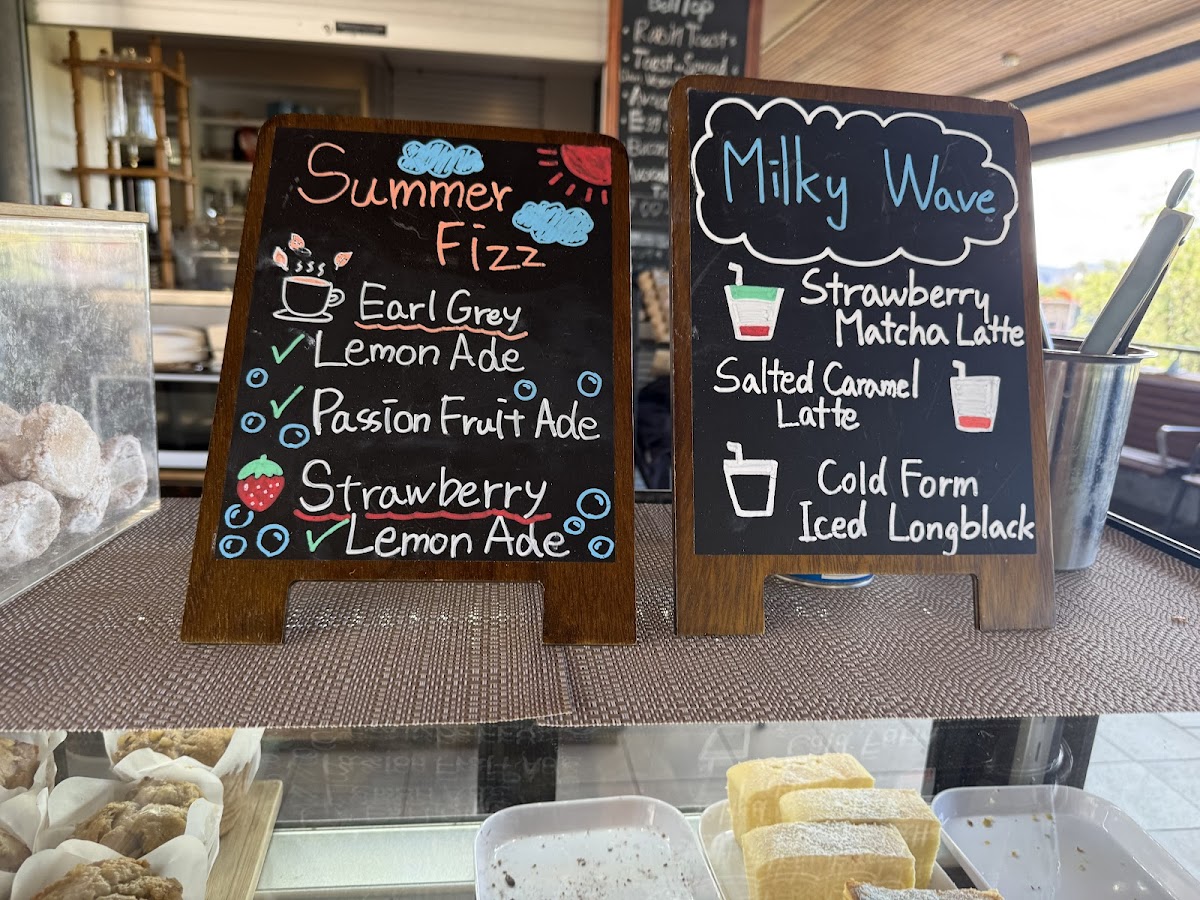 Summer
Fizz
Earl Grey
Lemon Ade
Passion Fruit Ade
Strawberry
Lemon Ade
Milky Wave
Strawberry
Matcha Latte
Salted Caramel
Latte
Cold Form
Iced Longblack
Raisin Toast
Toast